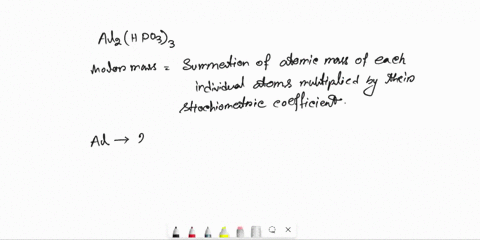 Al2(HPO3)3
Molar mass = Summetion of atomic mass of each
individual atoms multiplied by their
stochiometric coefficient.
Al → 2